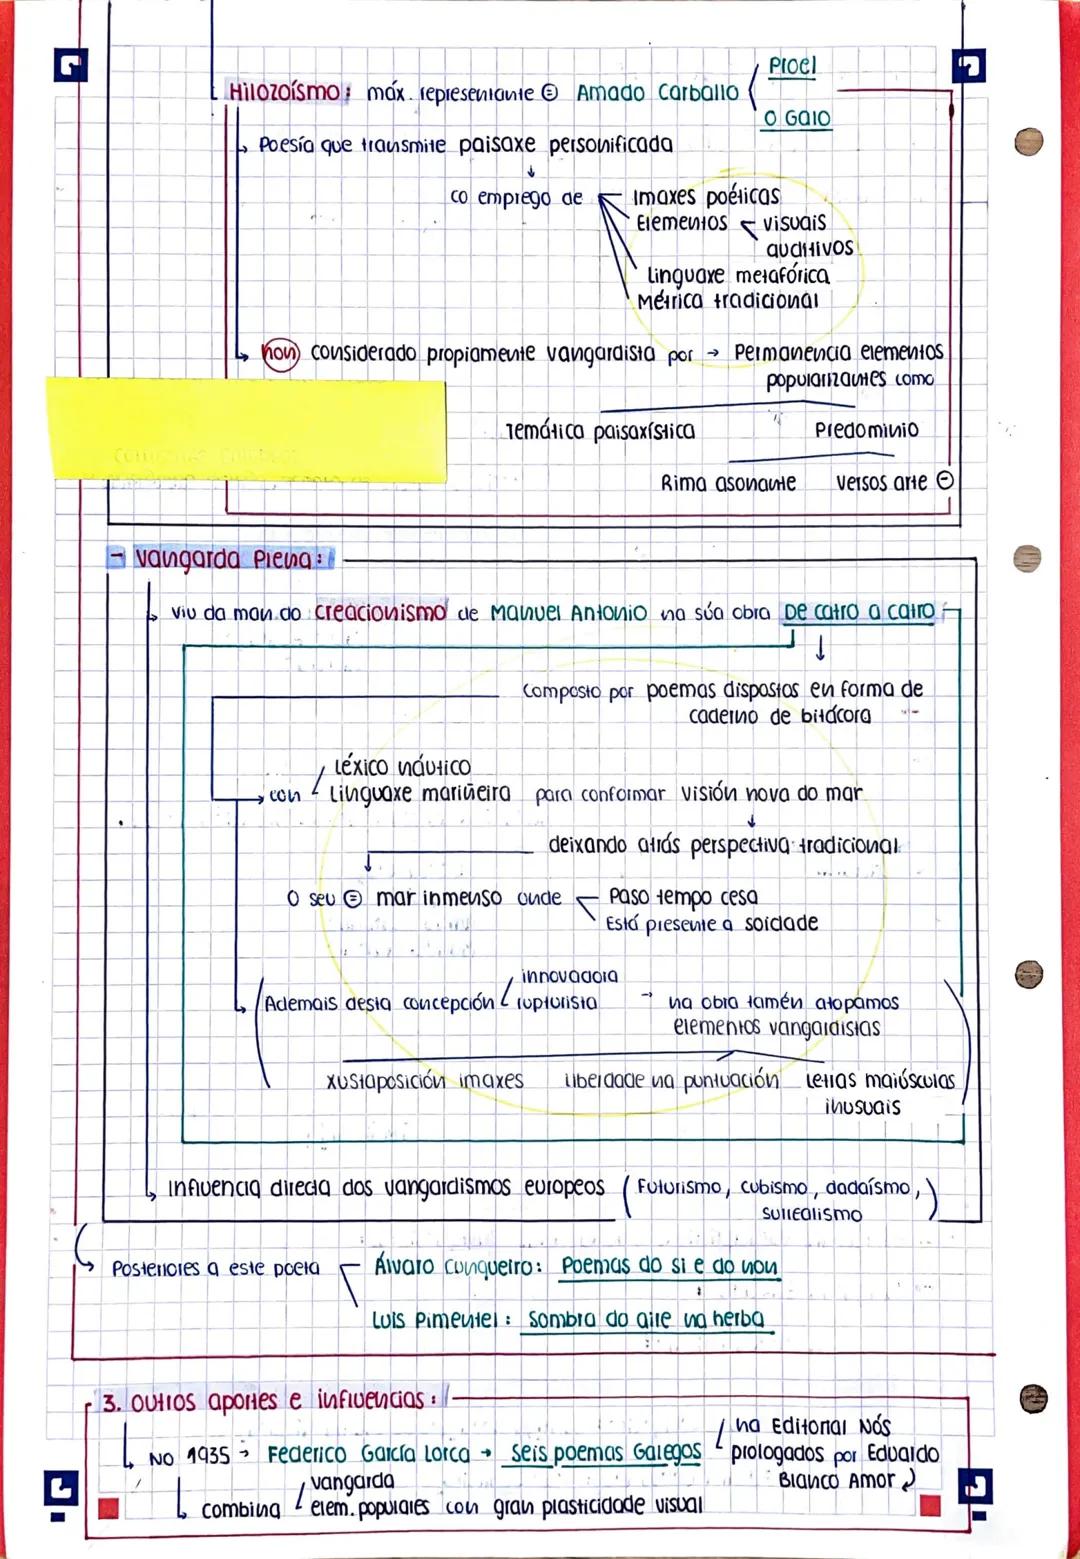 Proel
Hilozoísmo: máx. representante = Amado Carballo
O Galo
Poesía que transmite paisaxe personificada
co emprego de Imaxes poéticas
Elementos visuais
auditivos
Linguaxe metafórica
Métrica tradicional
non considerado propiamente vangardista por → Permanencia elementos
popularizantes como
Temática paisaxística Predominio
Rima asonante Versos arte -
- Vangarda Plena:
Viu da man do creacionismo de Manuel Antonio na súa obra De catro a catro
Composto por poemas dispostos en forma de
caderno de bitácora
léxico náutico
con Linguaxe mariñeira para conformar visión nova do mar
deixando atrás perspectiva tradicional
O seu = mar inmenso onde Paso tempo cesa
Está presente a soidade
innovadora
Ademais desta concepción rupturista → na obra tamén atopamos
elementos vangardistas
xustaposición imaxes liberdade na puntuación letras maiúsculas
inusuais
Influencia directa dos vangardismos europeos (Futurismo, cubismo, dadaísmo,
surrealismo)
Posteriores a este poeta Álvaro Cunqueiro: Poemas do si e do non
Luis Pimentel: Sombra do aire na herba
3. Outros aportes e influencias:
na Editorial Nós
No 1935 → Federico García Lorca → Seis poemas Galegos prologados por Eduardo
Blanco Amor
vangarda
combina elem. populares con gran plasticidade visual